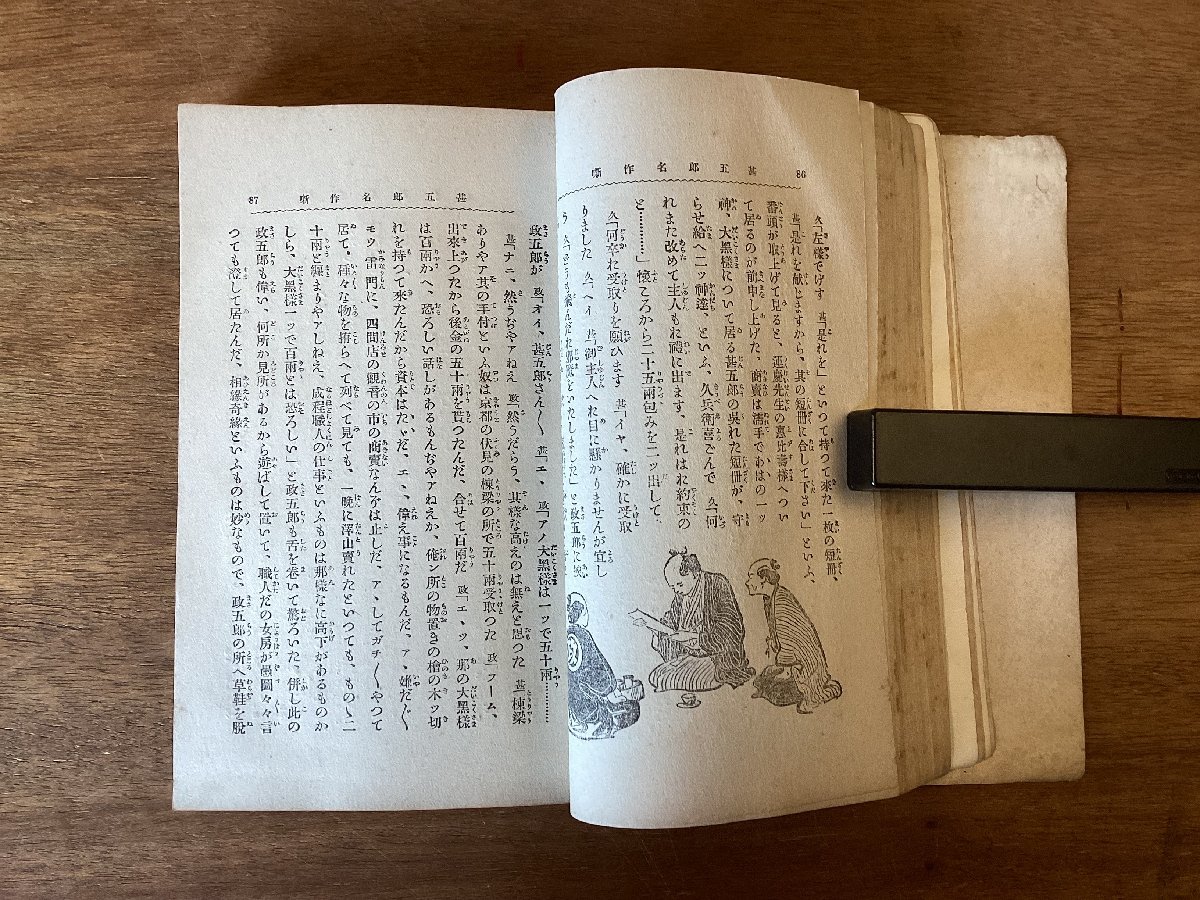 86 甚五郎名作噺
久「左樣でげす 甚「是れを」といつて持つて來た一枚の短冊、
甚「是れを献じますから、其の短冊に合して下さい」といふ、
番頭が取上げて見ると、運慶先生の惠比壽樣へつい
て居るのが前申し上げた、商賣は濡手であはの一ッ
神、大黑樣について居る甚五郎の吳れた短冊が、守
らせ給へ二ッ神達、といふ、久兵衞喜こんで 久「何
れまた改めて主人もお禮に出ます、是れはお約束の
と………」懷ころから二十五兩包みを二ッ出して、
久「何卒お受取りを願ひます 甚「イヤ、確かに受取
りました 久「ヘイ 甚「御主人へお目に懸かりませんが宜し
87 甚五郎名作噺
政五郎が 政「オイ、甚五郎さん〳〵 甚「エ、 政「アノ大黑樣は一ッで五十兩………
甚「ナニ、然うぢやアねえ 政「然うだらう、其樣な高えのは無えと思つた 甚「棟梁
ありやア其の手付といふ奴は京都の伏見の棟梁の所で五十兩受取つた 政「フーム、
出來上つたから後金の五十兩を貰つたんだ、合せて百兩だ 政「エ、ッ、那の大黑樣
は百兩かへ、恐ろしい話しがあるもんぢやアねえか、俺ン所の物置きの檜の木ッ切
れを持つて來たんだから資本はたゞだ、エヽ、偉え事になるもんだ、アヽ嫌だ〳〵
モウ、雷門に、四間店の觀音の市の商賣なんぞは止しだ、アヽしてガチ〳〵やつて
居て、種々な物を拵らへて列べて見ても、一晩に澤山賣れたといつても、ものゝ二
十兩と纒まりやアしねえ、成程職人の仕事といふものは那樣なに高下があるものか
しら、大黑樣一ッで百兩とは恐ろしい」と政五郎も舌を卷いて驚ろいた、併し此の
政五郎も偉い、何所か見所があるから遊ばして置いて、職人だの女房が愚圖々々言
つても澄して居たんだ、相緣奇緣といふものは妙なもので、政五郎の所へ草鞋を脫